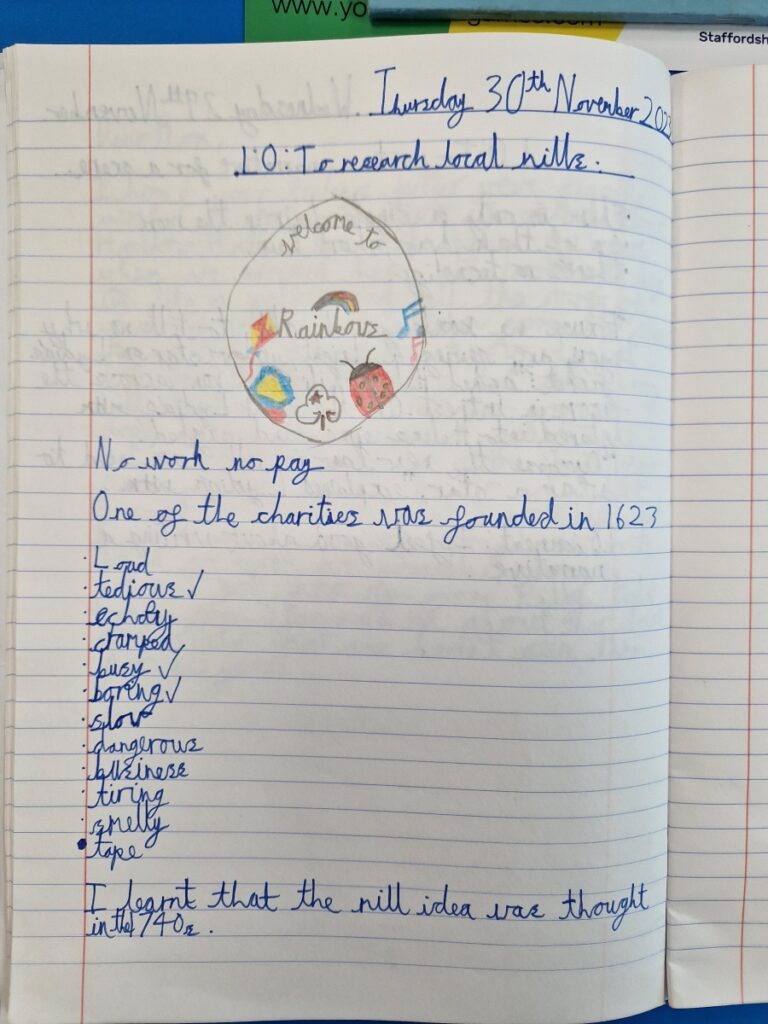 www.yo
games.com
Staffordsh
Thursday 30th November 2023
L:O: To research local mills.
Welcome to
Rainbows
No work no pay
One of the charities was founded in 1623
· Loud
· tedious ✓
· echoly
· cramped
· busy ✓
· boring ✓
· slow
· dangerous
· business
· tiring
· smelly
• tape
I learnt that the mill idea was thought
in the 1740s.